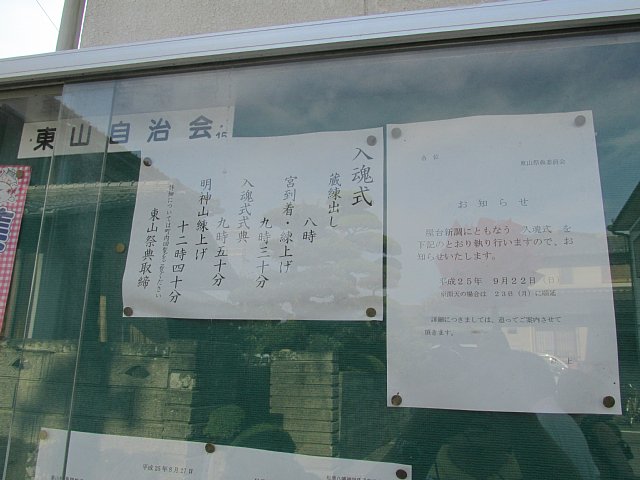 東山自治会
入魂式
蔵練出し
八時
宮到着・練上げ
九時三十分
入魂式式典
九時五十分
明神山練上げ
十二時四十分
東山祭典取締
各位
東山祭典委員会
お知らせ
屋台新調にともなう 入魂式 を
下記のとおり執り行いますので、お
知らせいたします。
平成25年 9月22日(日)
※雨天の場合は 23日(月)に順延
詳細につきましては、追ってご案内させて
頂きます。
上
平成25年8月17日